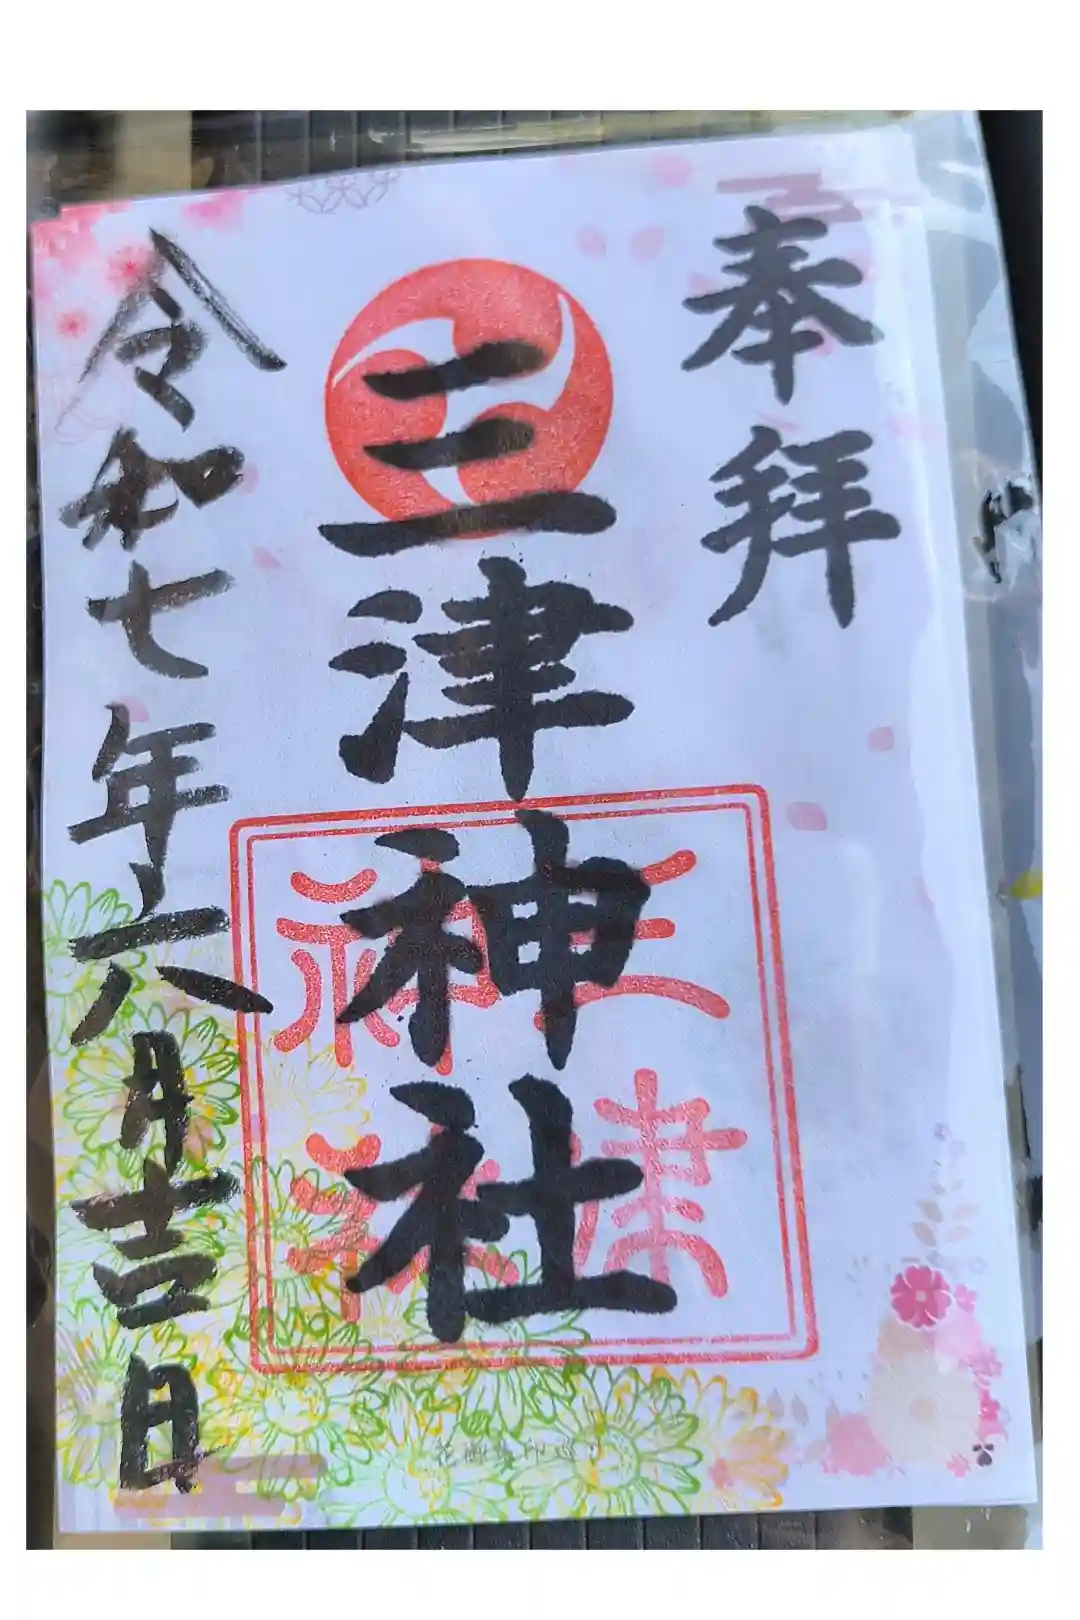 奉拝
三津神社
三津神社
令和七年六月吉日